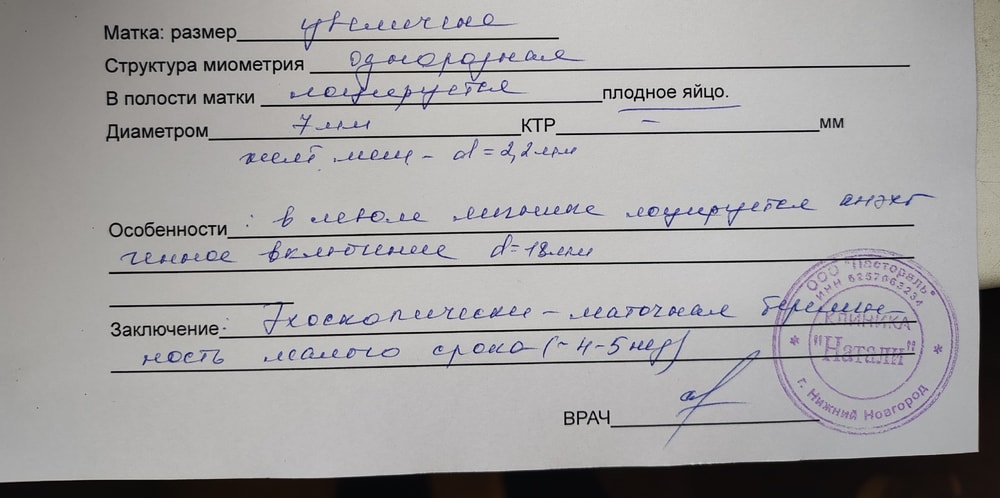 Матка: размер увеличена
Структура миометрия однородная
В полости матки лоцируется плодное яйцо.
Диаметром 7 мм КТР – мм
желт. меш – d = 2,2 мм
Особенности : в левом яичнике лоцируется анэхо
генное включение d=18мм
Заключение: Эхоскопически – маточная беремен
ность малого срока (~4-5 нед)
ВРАЧ
ООО "Пастораль"
ИНН 5257063234
КЛИНИКА
"Натали"
г. Нижний Новгород